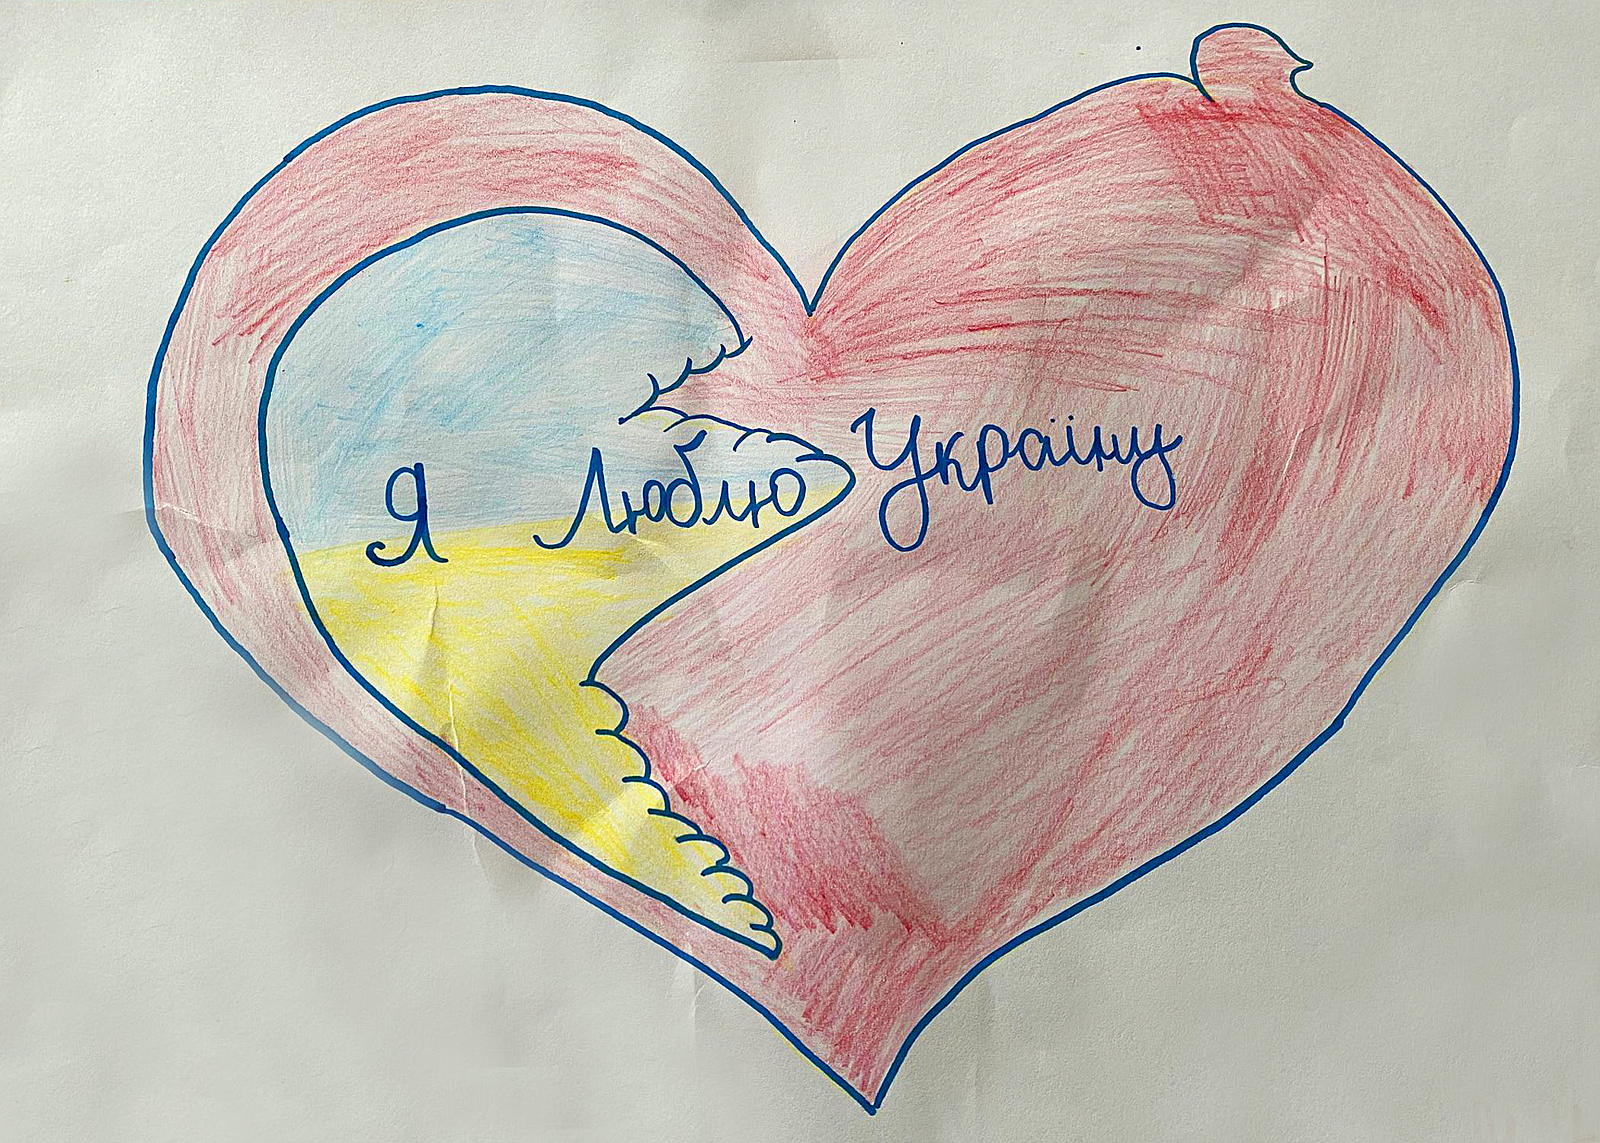 Я Люблю Україну